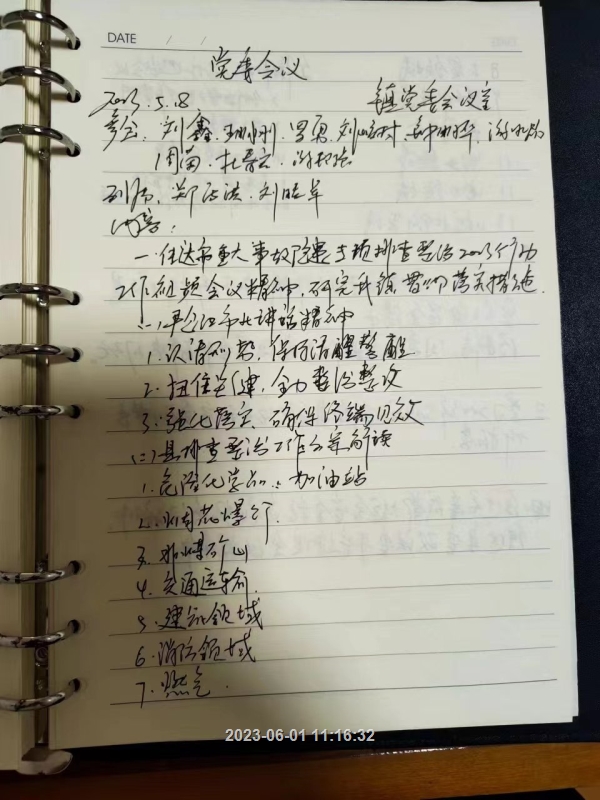 DATE / /
党委会议
2023.5.18 镇党委会议室
参会: 刘鑫.
周茵.
列席:
内容:
一.传达市重大事故隐患专项排查整治2023行动
工作视频会议精神,研究我镇贯彻落实措施
讲话精神
1.认清形势,保持清醒警醒
2.扭住关键,全力整治整改
3.强化落实,确保终端见效
(二)县排查整治工作方案解读
1.危险化学品:加油站
2.烟花爆竹.
3.非煤矿山
4.交通运输
5.建筑领域
6.消防领域
7.燃气.
2023-06-01 11:16:32